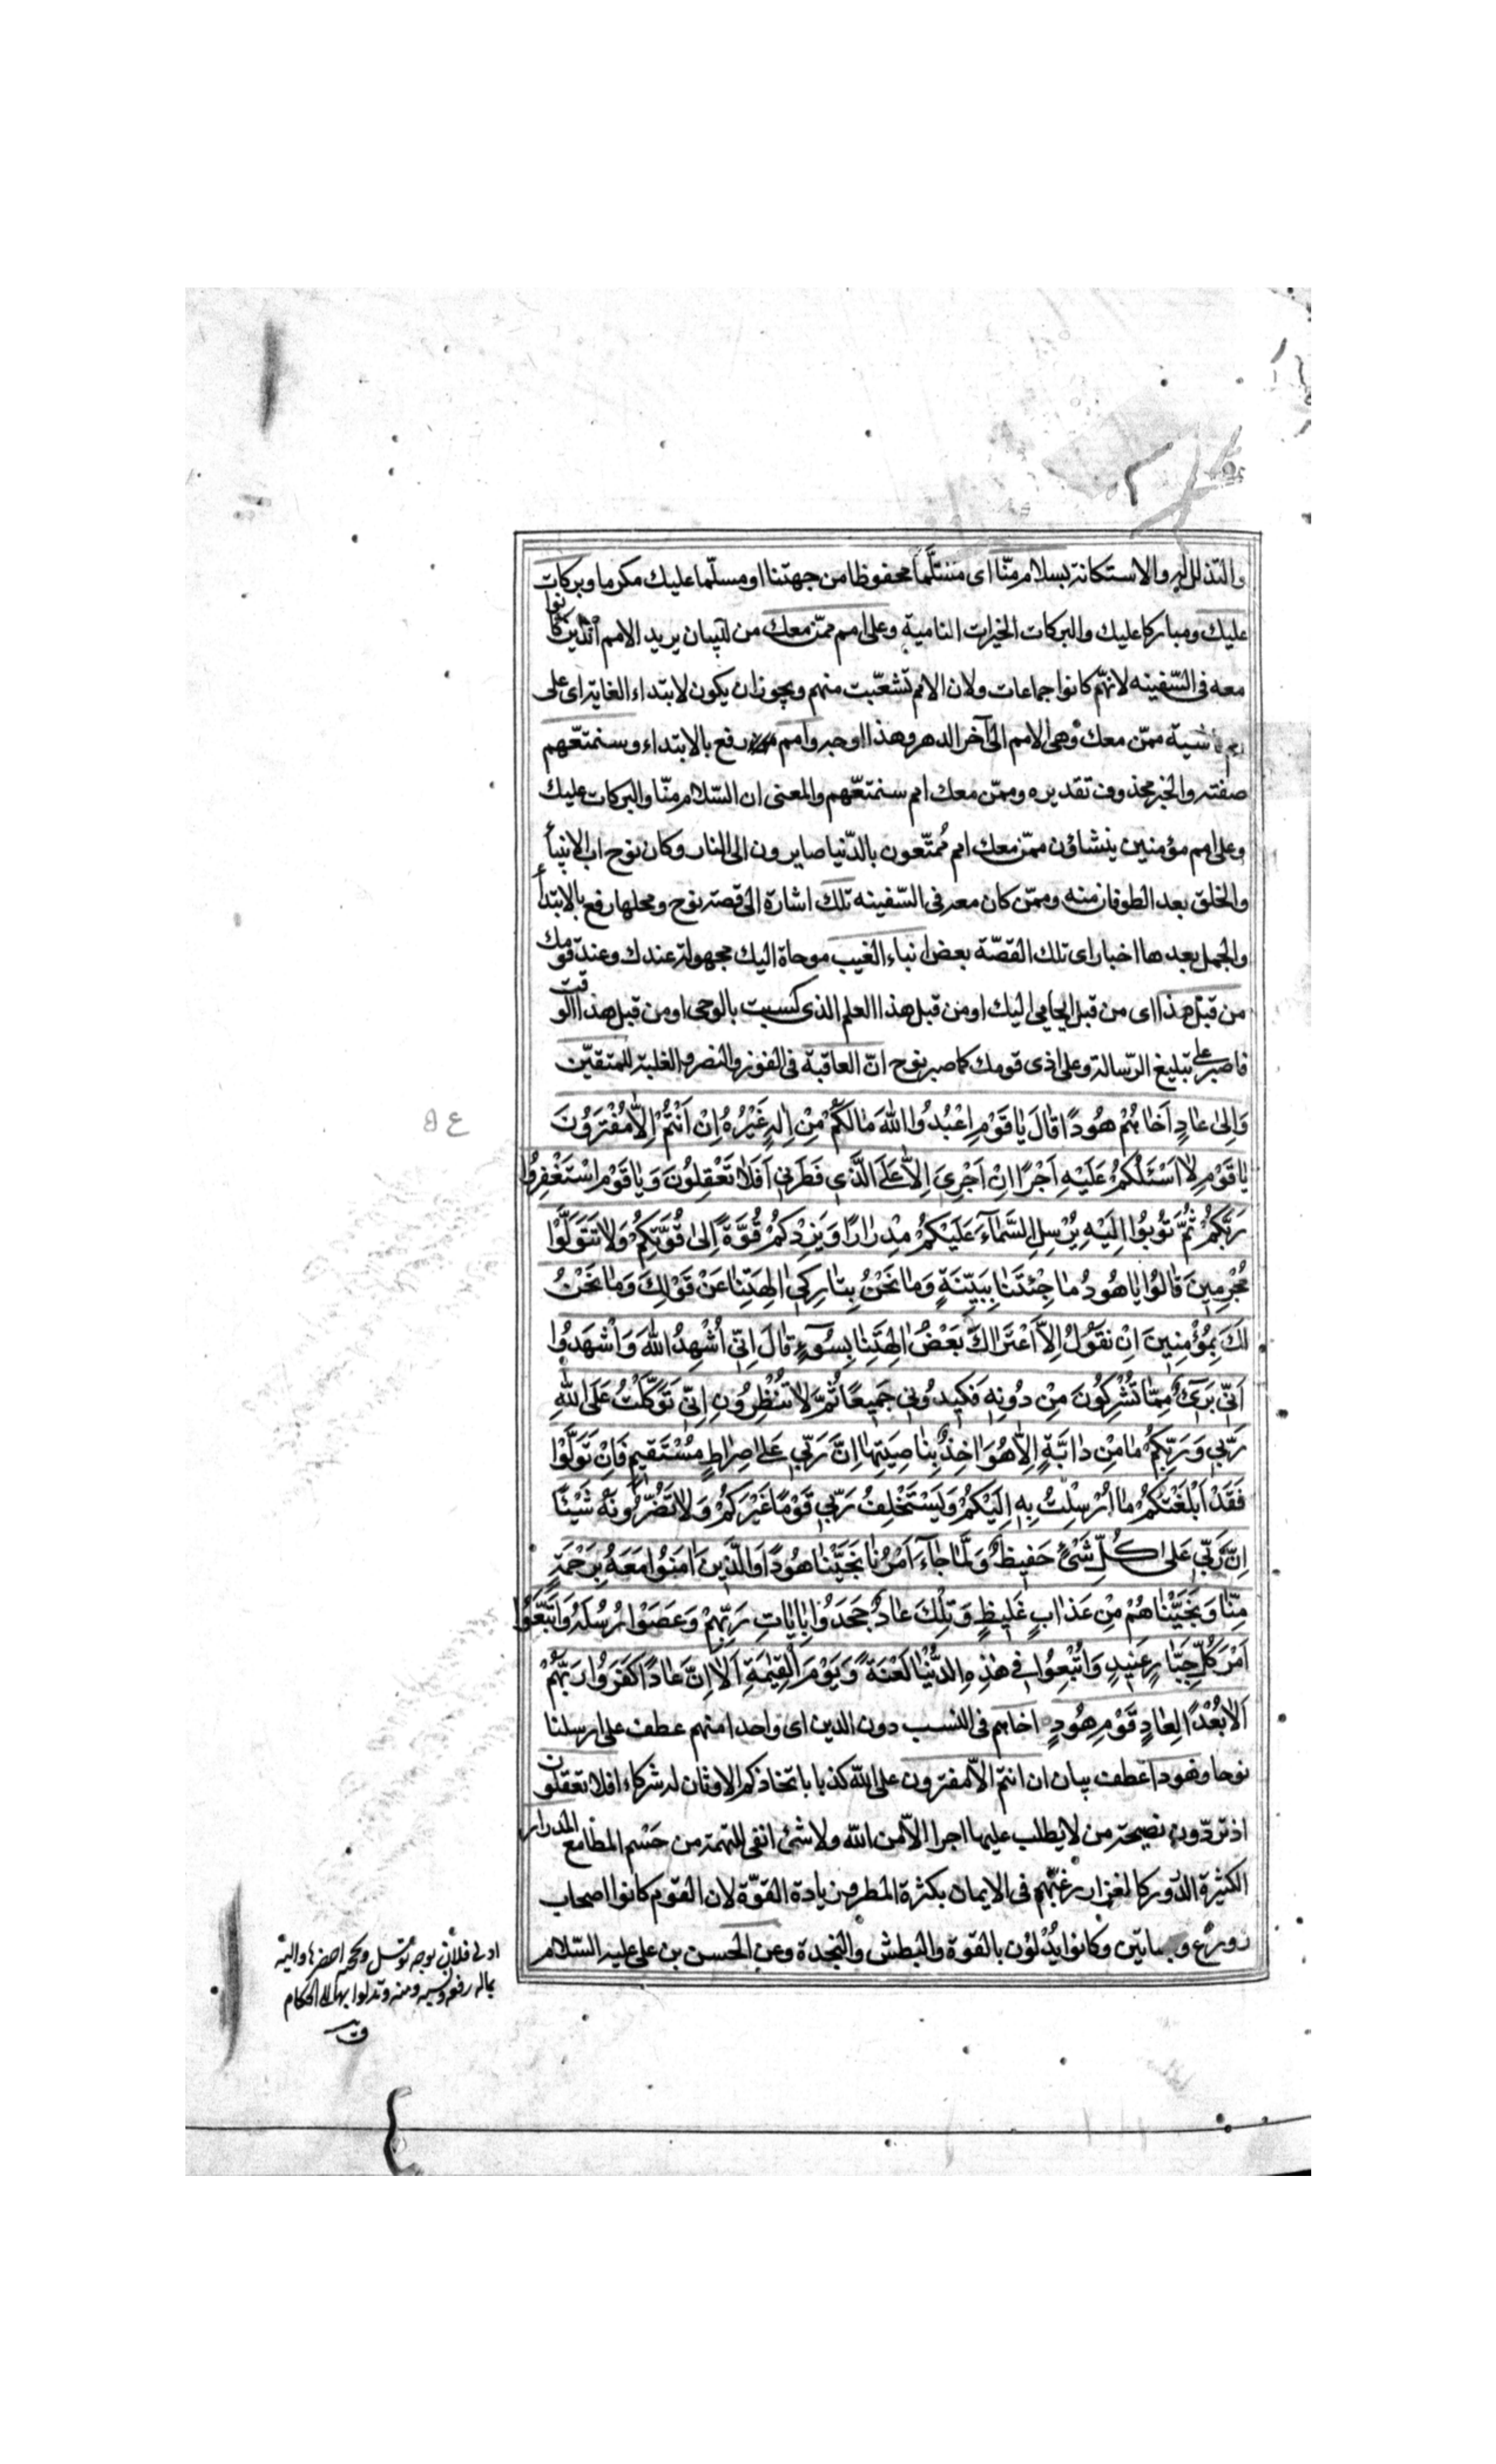 والتذلل له والاستكانة بسلام منّا اى مسلّما محفوظا من جهتنا او مسلّما عليك مكرما وبركات
عليك ومباركا عليك والبركات الخيرات النامية وعلى امم ممّن معك من للبيان يريد الامم الّذين كانوا
معه فى السّفينه لانهّم كانوا جماعات ولان الامم تشعّبت منهم ويجوز ان يكون لابتداء الغاية اى على
امم ناشية ممّن معك وهى الامم الى آخر الدهر وهذا اوجه وامم رفع بالابتداء وسنمتعّهم
صفته والخبر محذوف تقديره وممّن معك امم سنمتعّهم والمعنى ان السّلام منّا والبركات عليك
وعلى امم مؤمنين ينشاؤن ممّن معك امم مُمتّعون بالدّنيا صايرون الى النار وكان نوح اب الانبيأ
والخلق بعد الطوفان منه وممّن كان معه فى السّفينه تلك اشارة الى قصة نوح ومحلها رفع بالابتدأ
والجمل بعدها اخبار اى تلك القصّة بعض انباء الغيب موحاة اليك مجهولة عندك وعند قومك
من قبل هذا اى من قبل ايحايى اليك او من قبل هذا العلم الذى كسبت بالوحى او من قبل هذا الوقت
فاصبر على تبليغ الرّسالة وعلى اذى قومك كما صبر نوح انّ العاقبة فى الفوز والنصر والغلبة للمتقيّن
وَاِلىٰ عٰادٍ اَخٰاهُمْ هُودًا قٰالَ يٰا قَوْمِ اعْبُدُوا اللهَ مٰا لَكُمْ مِنْ اِلٰهٍ غَيْرُهُ اِنْ اَنْتُمْ اِلّٰا مُفْتَرُونَ
يٰا قَوْمِ لٰا اَسْئَلُكُمْ عَلَيْهِ اَجْرًا اِنْ اَجْرِىَ اِلّٰا عَلَى الَّذى فَطَرَنى اَفَلٰا تَعْقِلُونَ وَيٰا قَوْمِ اسْتَغْفِرُوا
رَبَّكُمْ ثُمَّ تُوبُوا اِلَيْهِ يُرْسِلِ السَّمٰآءَ عَلَيْكُمْ مِدْرٰارًا وَيَزِدْكُمْ قُوَّةً اِلىٰ قُوَّتِكُمْ وَلٰا تَتَوَلَّوْا
مُجْرِمينَ قٰالُوا يٰا هُودُ مٰا جِئْتَنٰا بِبَيِّنَةٍ وَمٰا نَحْنُ بِتٰارِكى اٰلِهَتِنٰا عَنْ قَوْلِكَ وَمٰا نَحْنُ
لَكَ بِمُؤْمِنينَ اِنْ نَقُولُ اِلَّا اعْتَرٰاكَ بَعْضُ اٰلِهَتِنٰا بِسُوٓءٍ قٰالَ اِنّى اُشْهِدُ اللهَ وَاشْهَدُوا
اَنّى بَرىٓءٌ مِمّٰا تُشْرِكُونَ مِنْ دُونِه فَكيدُونى جَميعًا ثُمَّ لٰا تُنْظِرُونِ اِنّى تَوَكَّلْتُ عَلَى اللهِ
رَبّى وَرَبِّكُمْ مٰا مِنْ دٰابَّةٍ اِلّٰا هُوَ اٰخِذٌ بِنٰاصِيَتِهٰا اِنَّ رَبّى عَلىٰ صِرٰاطٍ مُسْتَقيمٍ فَاِنْ تَوَلَّوْا
فَقَدْ اَبْلَغْتُكُمْ مٰا اُرْسِلْتُ بِه اِلَيْكُمْ وَيَسْتَخْلِفُ رَبّى قَوْمًا غَيْرَكُمْ وَلٰا تَضُرُّونَهُ شَيْئًا
اِنَّ رَبّى عَلىٰ كُلِّ شَىْءٍ حَفيظٌ وَلَمّٰا جٰآءَ اَمْرُنٰا نَجَّيْنٰا هُودًا وَالَّذينَ اٰمَنُوا مَعَهُ بِرَحْمَةٍ
مِنّٰا وَنَجَّيْنٰاهُمْ مِنْ عَذٰابٍ غَليظٍ وَتِلْكَ عٰادٌ جَحَدُوا بِاٰيٰاتِ رَبِّهِمْ وَعَصَوْا رُسُلَهُ وَاتَّبَعُوا
اَمْرَ كُلِّ جَبّٰارٍ عَنيدٍ وَاُتْبِعُوا فى هٰذِهِ الدُّنْيٰا لَعْنَةً وَيَوْمَ الْقِيٰمَةِ اَلٰا اِنَّ عٰادًا كَفَرُوا رَبَّهُمْ
اَلٰا بُعْدًا لِعٰادٍ قَوْمِ هُودٍ اخاهم فى النسب دون الدين اى واحدا منهم عطف على ارسلنا
نوحا وهودا عطف بيان ان انتم الّا مفترون على الله كذبا باتخاذكم الاوثان له شركاء افلا تعقلون
اذ تردّون نصيحة من لا يطلب عليها اجرا الّا من الله ولا شئ انفى للتهمة من حَسْم المطامع المدرار
الكثيرة الدّرور كالمغزار رغبّهم فى الايمان بكثرة المطر وزيادة القوّة لان القوم كانوا اصحاب
زورع وبساتين وكانوا يُدْلؤن بالقوة والبطش والنجدة وعن الحسن بن على عليه السّلام
ع ۵
ادلى فلان بوجه توسل وبحجته احضرها واليه
بماله رفعه ومنه وتدلوا بها الى الحكام
ق